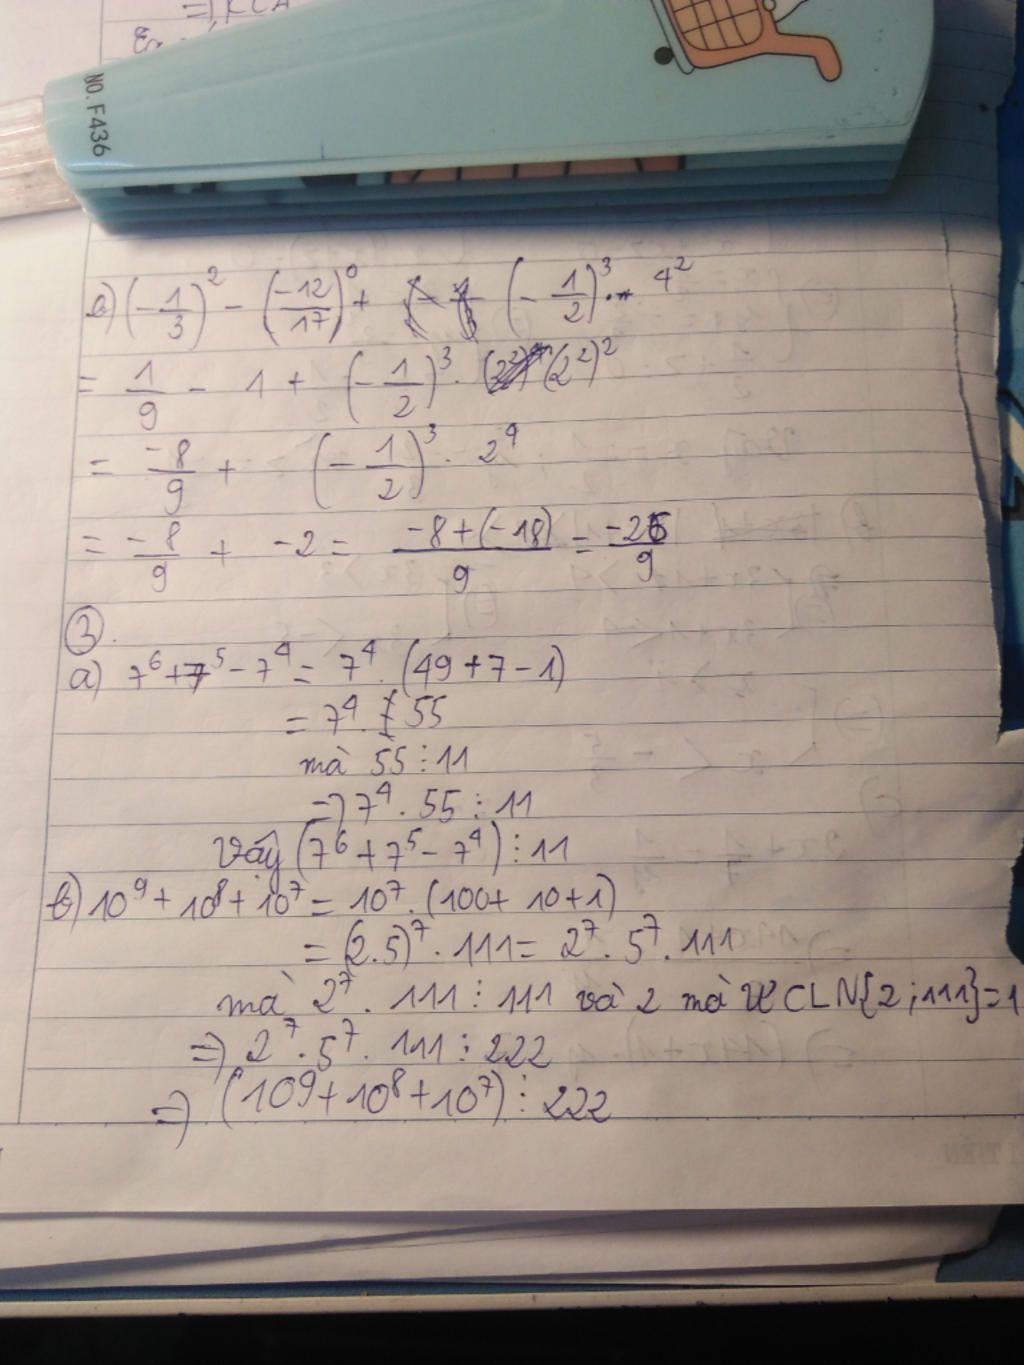 =) KCA
NO. F436
a) (-1/3)² - (-12/17)⁰ + (-1/2)³ · 4²
= 1/9 - 1 + (-1/2)³ · (2²)²
= -8/9 + (-1/2)³ · 2⁴
= -8/9 + -2 = -8+(-18)/9 = -26/9
③.
a) 7⁶+7⁵-7⁴ = 7⁴ . (49+7-1)
= 7⁴ . 55
mà 55 ⋮ 11
=) 7⁴ . 55 ⋮ 11
Vậy (7⁶+7⁵-7⁴) ⋮ 11
b) 10⁹+10⁸+10⁷ = 10⁷ . (100+10+1)
= (2.5)⁷ . 111 = 2⁷ . 5⁷ . 111
mà 2⁷ . 111 ⋮ 111 và 2 mà ƯCLN{2;111}=1
=) 2⁷ . 5⁷ . 111 ⋮ 222
=) (10⁹+10⁸+10⁷) ⋮ 222